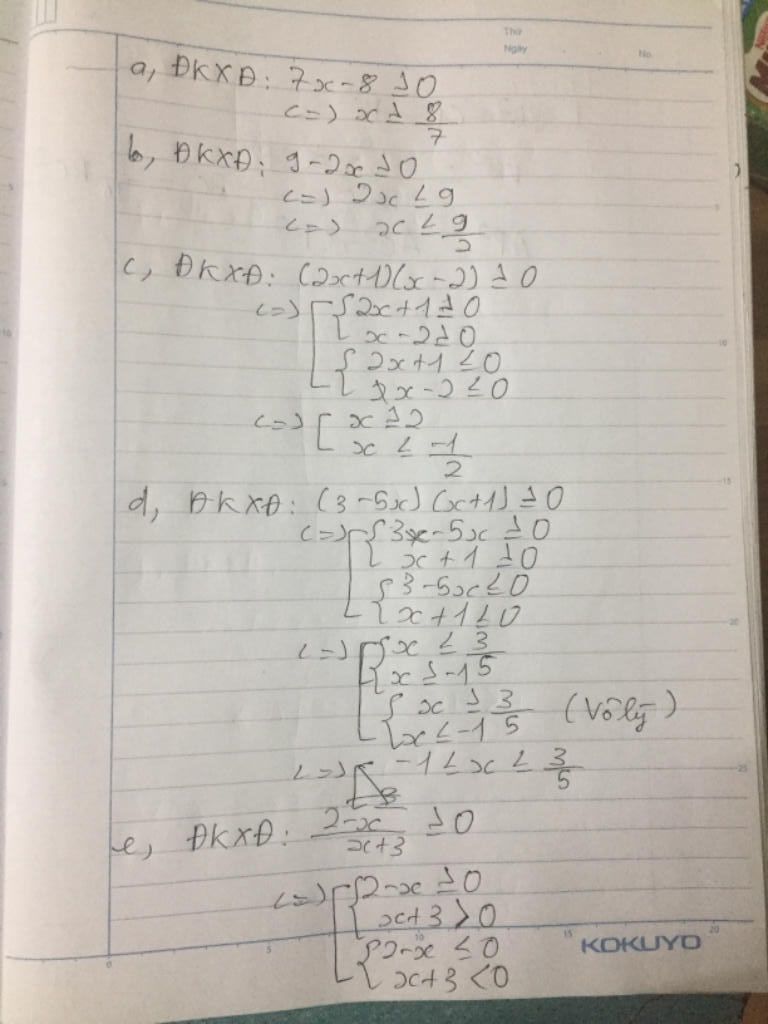 Thứ
Ngày
No.
a, ĐKXĐ: 7x-8 ≥ 0
<=> x ≥ 8/7
b, ĐKXĐ: 9-2x ≥ 0
<=> 2x ≤ 9
<=> x ≤ 9/2
c, ĐKXĐ: (2x+1)(x-2) ≥ 0
<=> [ { 2x+1 ≥ 0
x-2 ≥ 0
{ 2x+1 ≤ 0
x-2 ≤ 0
<=> [ x ≥ 2
x ≤ -1/2
d, ĐKXĐ: (3-5x)(x+1) ≥ 0
<=> [ { 3-5x ≥ 0
x+1 ≥ 0
{ 3-5x ≤ 0
x+1 ≤ 0
<=> [ { x ≤ 3/5
x ≥ -1
{ x ≥ 3/5 (Vô lý)
x ≤ -1
<=> -1 ≤ x ≤ 3/5
e, ĐKXĐ: 2-x/x+3 ≥ 0
<=> [ { 2-x ≥ 0
x+3 > 0
{ 2-x ≤ 0
x+3 < 0
KOKUYO